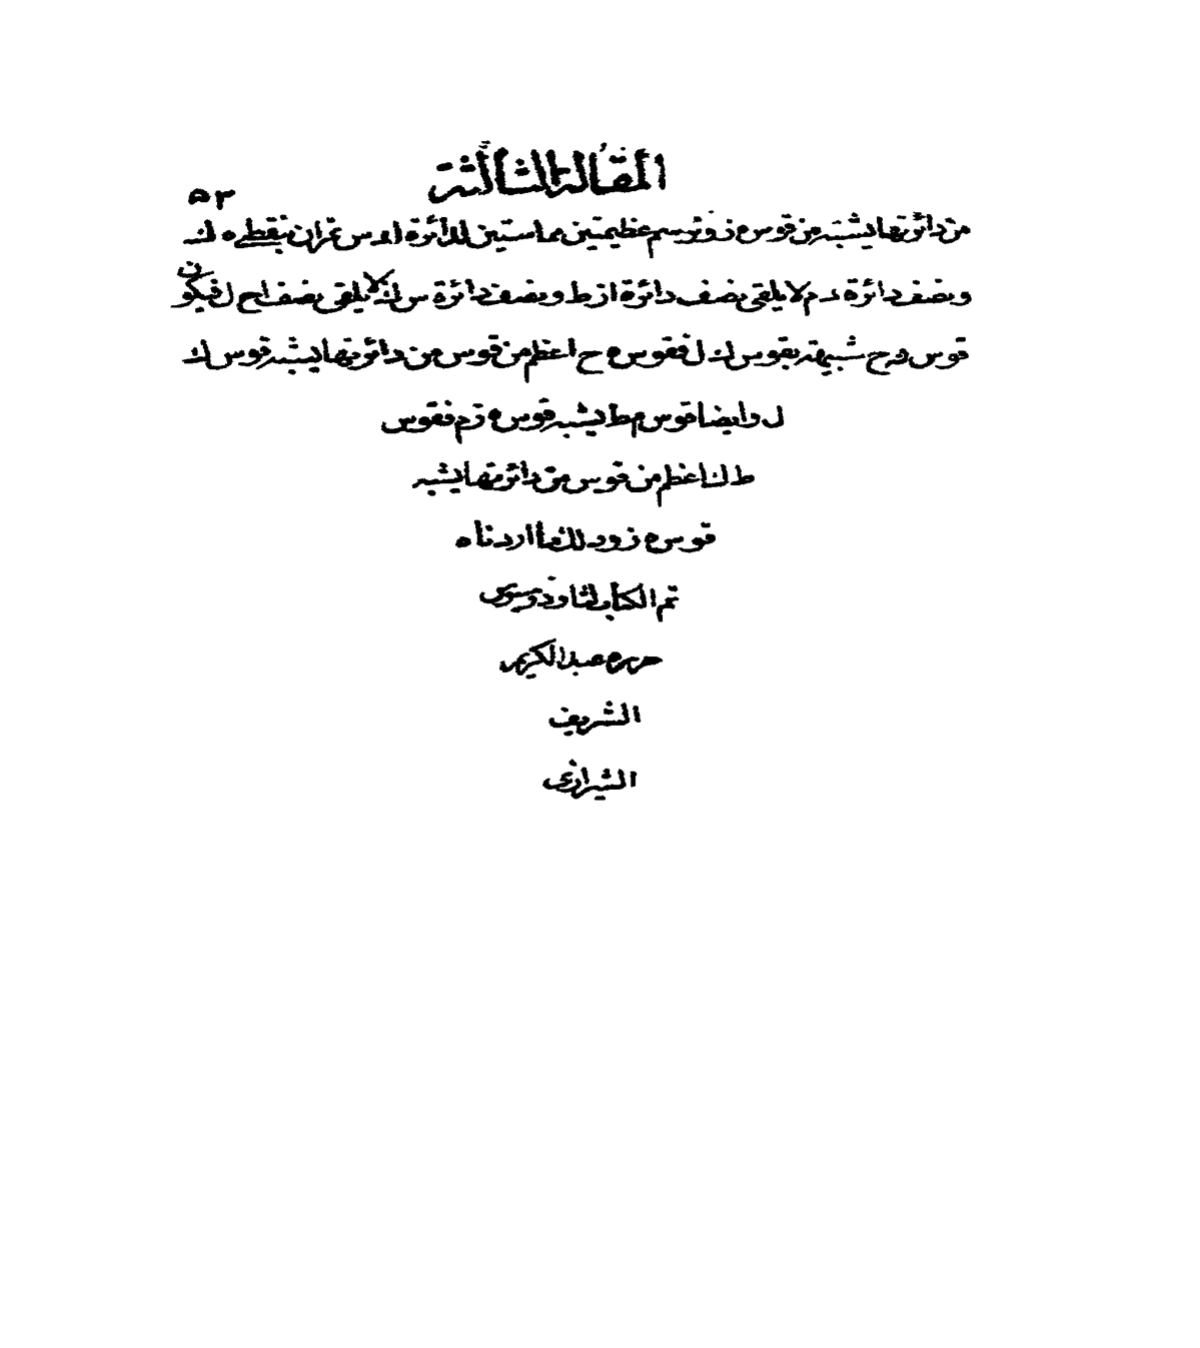 المقالة الثالثة
٥٣
من دائرتها يشبه من قوس ه ز ونرسم عظيمتين مماستين لدائرة ا د س تمران بنقطے ه ك
ونصف دائرة ز م لا يلقى نصف دائرة ا ز ط ونصف دائرة س ك لا يلقى نصف ا ح ل فيكون
قوس ه ح شبيهة بقوس ك ل فقوس ه ح اعظم من قوس من دائرتها يشبه قوس ك
ل وايضا قوس م ط يشبه قوس ه ز م فقوس
ط ك اعظم من قوس من دائرتها يشبه
قوس ه ز وذلك ما اردناه
تم الكتاب لثاوذوسيوس
حرره عبد الكريم
الشريف
الشيرازى